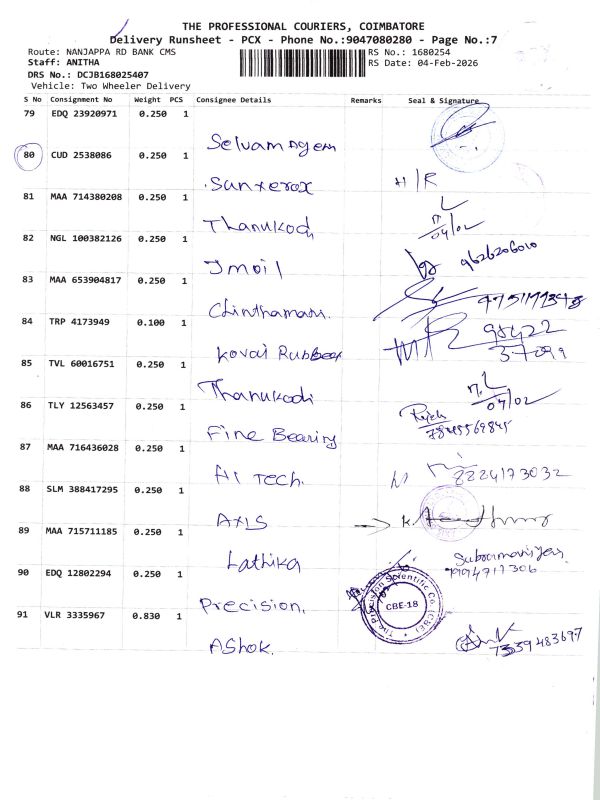 THE PROFESSIONAL COURIERS, COIMBATORE
Delivery Runsheet - PCX - Phone No.:9047080280 - Page No.:7
Route: NANJAPPA RD BANK CMS
RS No.: 1680254
Staff: ANITHA
RS Date: 04-Feb-2026
DRS No.: DCJB168025407
Vehicle: Two Wheeler Delivery
S No Consignment No Weight PCS Consignee Details Remarks Seal & Signature
79 EDQ 23920971 0.250 1
Selvam Agen
80 CUD 2538086 0.250 1
Sunxerox H/R
81 MAA 714380208 0.250 1
Thanukodi 04/02
82 NGL 100382126 0.250 1
Jmoil 9626206010
83 MAA 653904817 0.250 1
Chinthamani
84 TRP 4173949 0.100 1
Kovai Rubber 98422
85 TVL 60016751 0.250 1
Thanukodi 04/02
86 TLY 12563457 0.250 1
Fine Bearing
87 MAA 716436028 0.250 1
AI Tech. 8224173032
88 SLM 388417295 0.250 1
AXIS
89 MAA 715711185 0.250 1
Lathika Subramaniyan
9994717306
90 EDQ 12802294 0.250 1
Precision.
The Precision Scientific Co. (CBE)
CBE-18
91 VLR 3335967 0.830 1
Ashok. 7339483697